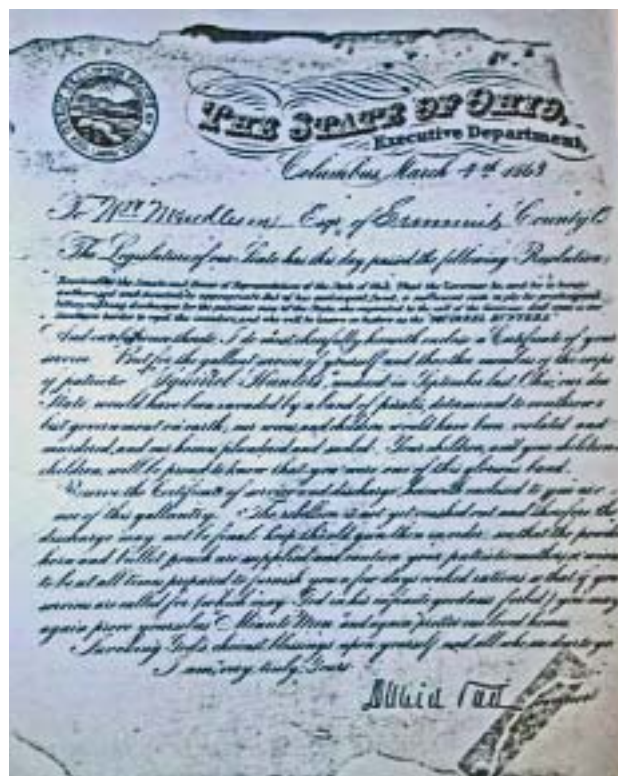 THE STATE OF OHIO,
Executive Department,
Columbus, March 4th 1863
To Wm Mendleson Esq. of County O
The Legislature of our State has this day passed the following Resolution:
Resolved by the Senate and House of Representatives of the State of Ohio, That the Governor be and he is hereby
authorized and directed to appropriate out of his contingent fund, a sufficient sum to pay for
"SQUIRREL HUNTERS."
And in thereto I do most cheerfully herewith enclose a Certificate of your
service. But for the gallant services of yourself and the other members of the corps
of patriotic "Squirrel Hunters," rendered in September last Ohio, our dear
State, would have been invaded by a band of pirates, determined to overthrow the
best government on earth; our wives and children would have been violated and
murdered, and our homes plundered and sacked. Your children, and your children's
children, will be proud to know that you were one of this glorious band.
Preserve the Certificate of service and discharge, herewith enclosed to you as
of this gallantry. The rebellion is not yet crushed out and therefore the
discharge may not be final; keep the old gun then in order; see that the powder
horn and bullet pouch are supplied and caution your patriotic mothers or wives
to be at all times prepared to furnish you a few days cooked rations so that if your
services are called for (which may God in his infinite goodness forbid) you may
again prove yourselves "Minute Men" and again protect our loved homes.
Invoking God's choicest blessings upon yourself and all who are dear to you
I am very truly Yours
David Tod